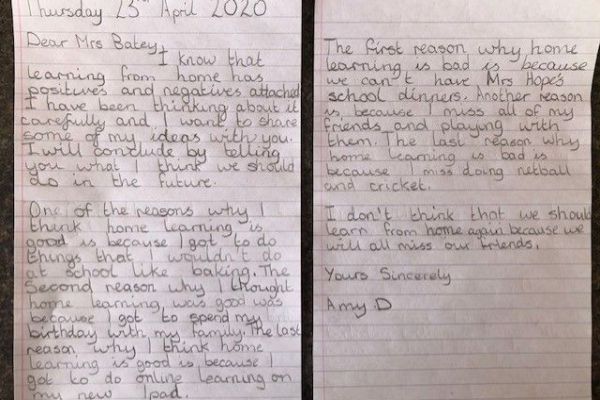 Thursday 23rd April 2020
Dear Mrs Batey,
I know that
learning from home has
positives and negatives attached.
I have been thinking about it
carefully and I want to share
some of my ideas with you.
I will conclude by telling
you what I think we should
do in the future.
One of the reasons why I
think home learning is
good is because I got to do
things that I wouldn't do
at school like baking. The
second reason why I thought
home learning was good was
because I got to spend my
birthday with my family. The last
reason why I think home
learning is good is because I
got to do online learning on
my new Ipad.
The first reason why home
learning is bad is because
we can't have Mrs Hope's
school dinners. Another reason
is because I miss all of my
friends and playing with
them. The last reason why
home learning is bad is
because I miss doing netball
and cricket.
I don't think that we should
learn from home again because we
will all miss our friends.
Yours Sincerely
Amy D